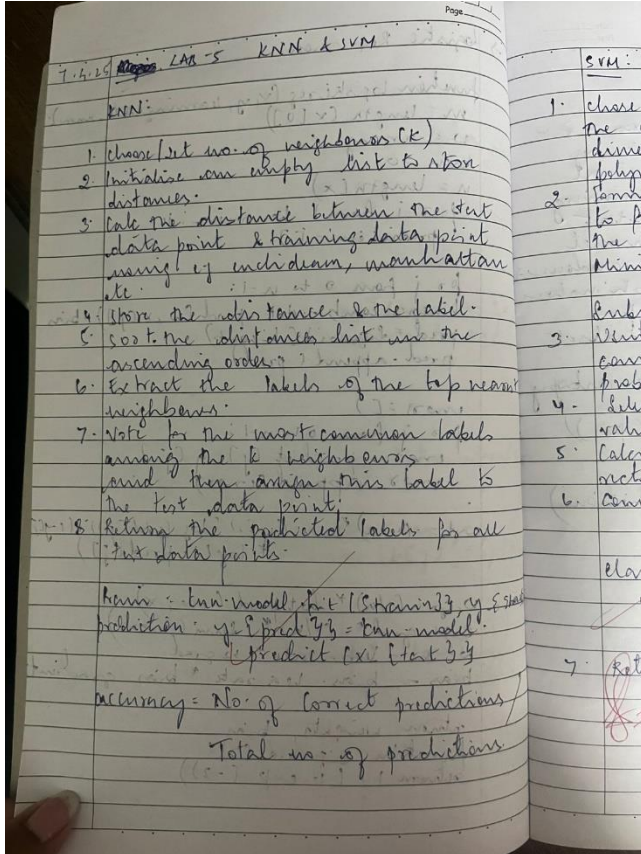 Page
7.4.25 LAB-5 KNN & SVM
KNN:
1. choose/set no. of neighbours (K)
2. Initialise an empty list to store
distances.
3. Calc the distance between the test
data point & training data point
using eg euclidean, manhattan
etc.
4. Store the distance & the label.
5. sort the distances list in the
ascending order.
6. Extract the labels of the top nearest
neighbours.
7. Vote for the most common labels
among the k neighbours
and then assign this label to
the test data point.
8. Return the predicted labels for all
test data points.
knn-model.fit
prediction: y-{pred}} = knn-model.
predict (x {test}}
accuracy = No. of Correct predictions
Total no. of predictions.
SVM:
1. chose
the
dime
polyn
2.
to
the
Mini
3
con
prob
4.
valu
5. Calc
6.
cla
7. Ret